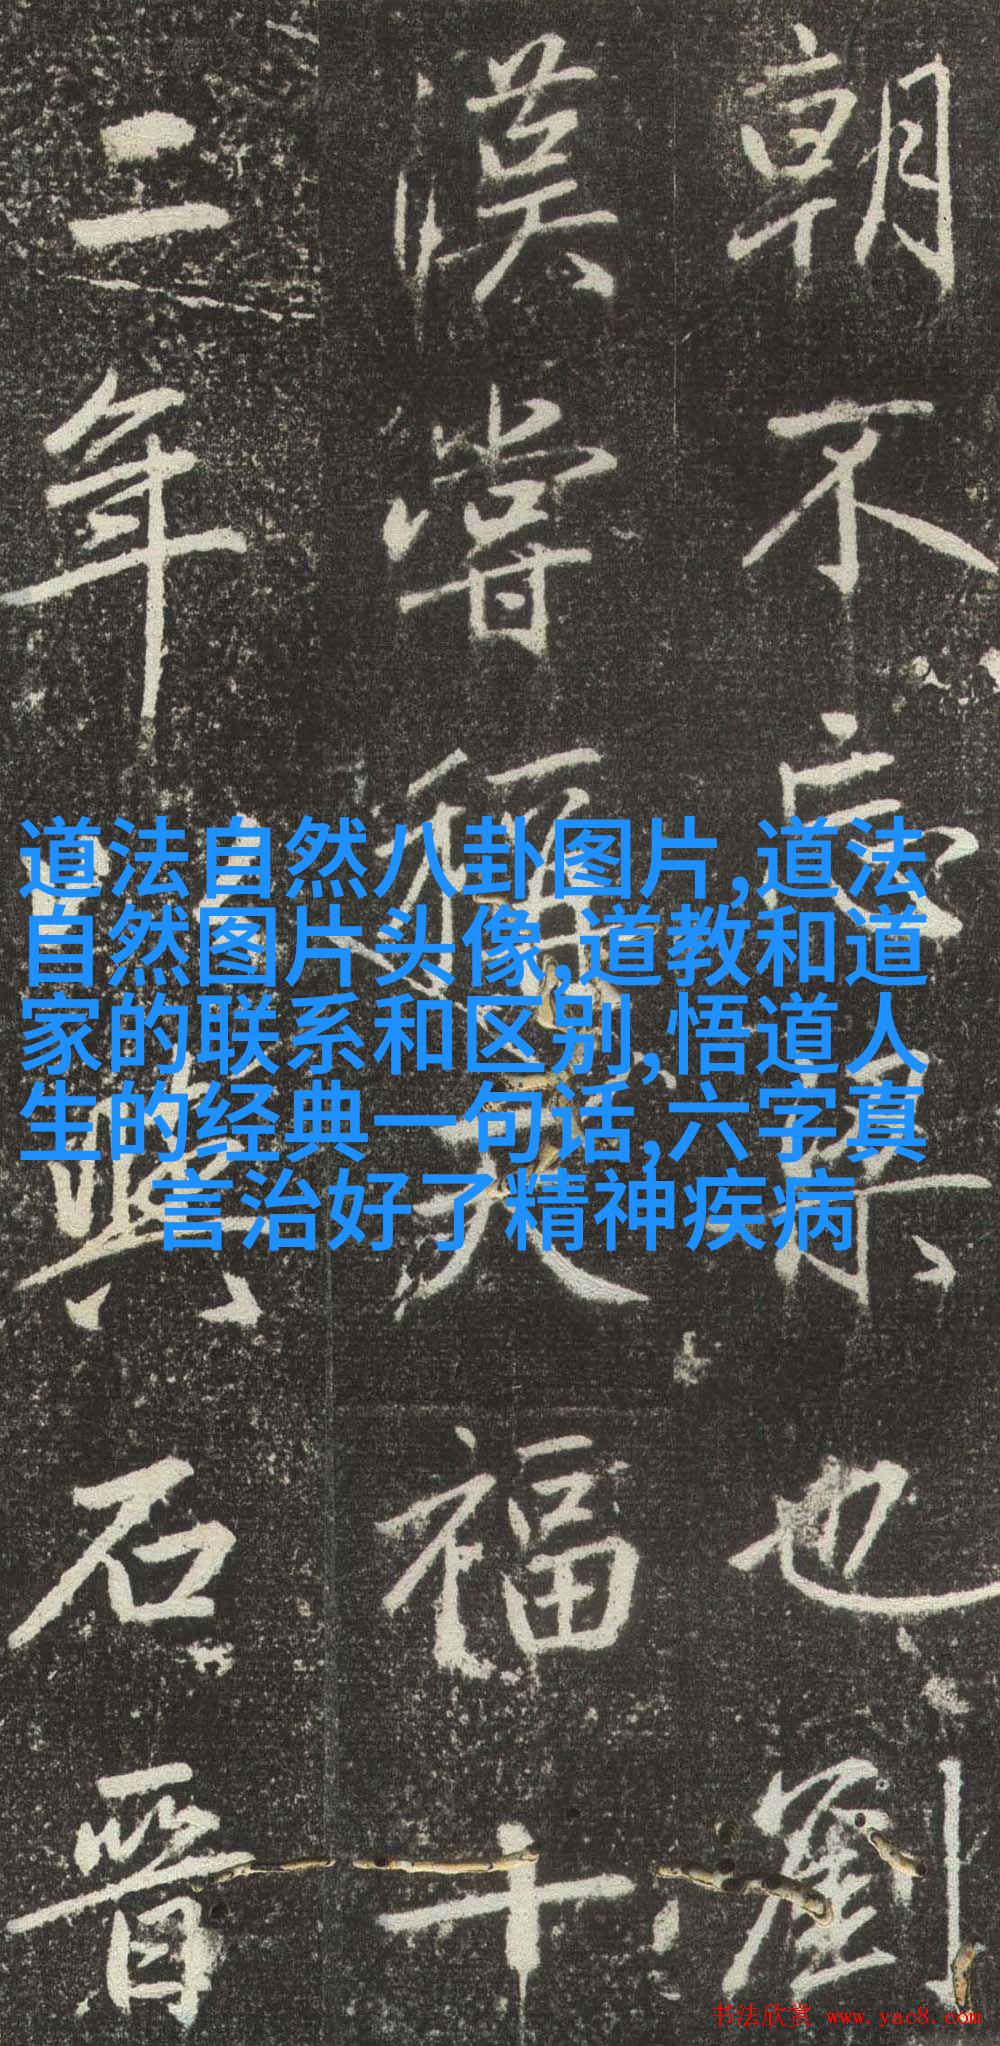 朝不應築也劉
漢嘗稱天福十
二年與石晉
道法自然八卦图片,道法
自然图片头像,道教和道
家的联系和区别,悟道人
生的经典一句话,六字真
言治好了精神疾病
书法欣赏 www.yac8.com